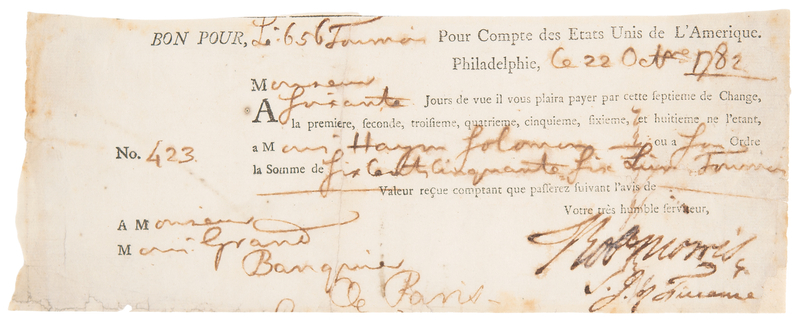 BON POUR, L.s 656 Tournois Pour Compte des Etats Unis de L'Amerique.
Philadelphie, Ce 22 Octbre 1782
Monsieur
A Soixante Jours de vue il vous plaira payer par cette ſeptieme de Change,
la premiere, seconde, troiſieme, quatrieme, cinquieme, ſixieme, et huitieme ne l'etant,
No. 423 a M Haym Solomon ou a Son Ordre
la Somme de Six Cents Cinquante Six Tournois
Valeur reçue comptant que paſſerez ſuivant l'avis de
Votre très humble ſerviteur,
A Monsieur
M Grand
Banquier
De Paris
Robt Morris
S. I. of Finance